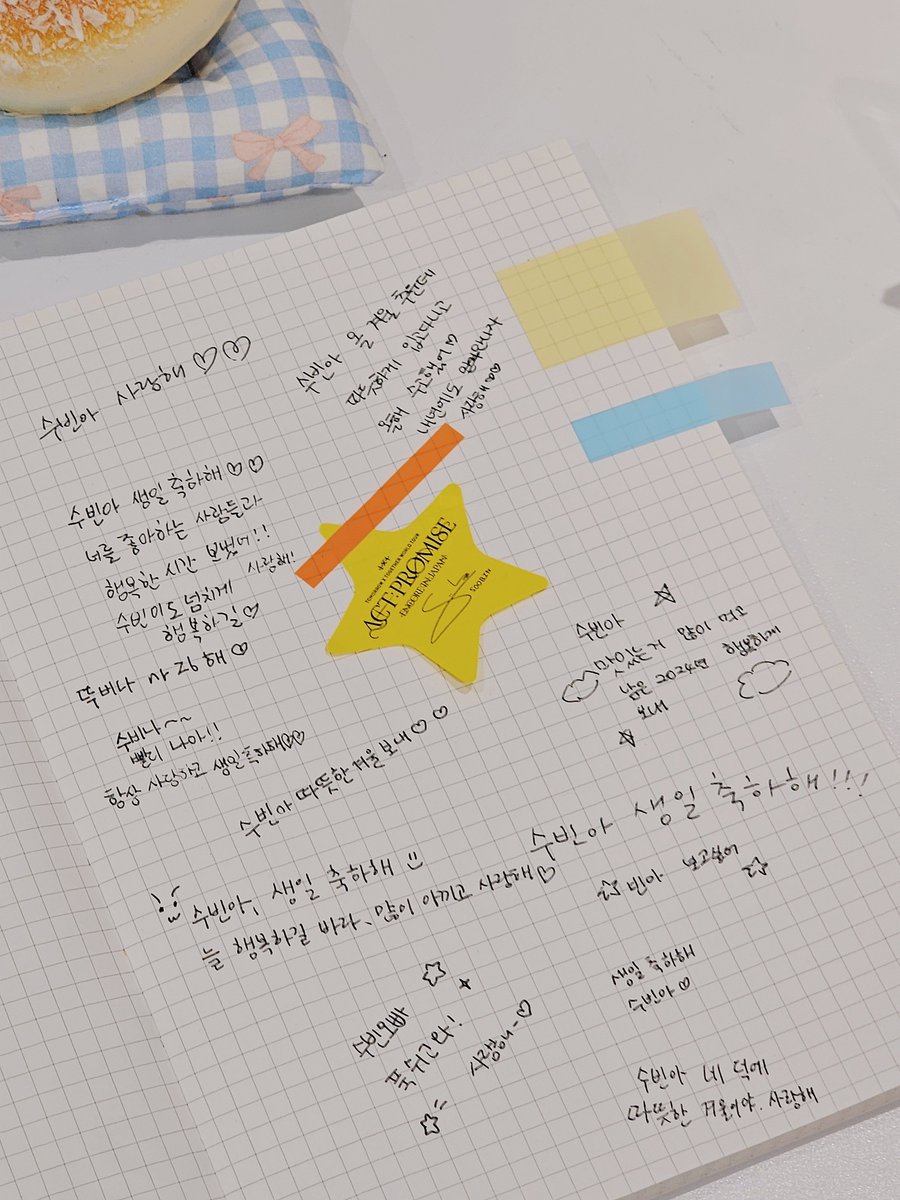 수빈아 사랑해♡♡
수빈아 올 겨울 추운데
따뜻하게 입고다니고
올해 수고했어♡
내년에도 행복하자
사랑해♡♡
수빈아 생일 축하해♡♡
너를 좋아하는 사람들과
행복한 시간 보냈어!!
수빈이도 넘치게 사랑해!
행복하길♡
뚜버나 사랑해♡
수비나~~
빨리 나아!!
항상 사랑하고 생일축하해♡♡
TOMORROW X TOGETHER WORLD TOUR
ACT:PROMISE
-ENCORE IN JAPAN-
SOOBIN
수빈아
맛있는거 많이 먹고
남은 2024년 행복하게
보내
수빈아 따뜻한 겨울 보내♡♡
수빈아 생일 축하해!!!
수빈아, 생일 축하해
늘 행복하길 바라, 많이 아끼고 사랑해♡
빈아 보고싶어
생일 축하해
수빈아♡
수빈오빠
푹 쉬고와!
사랑해~♡
수빈아 네 덕에
따뜻한 겨울이야. 사랑해